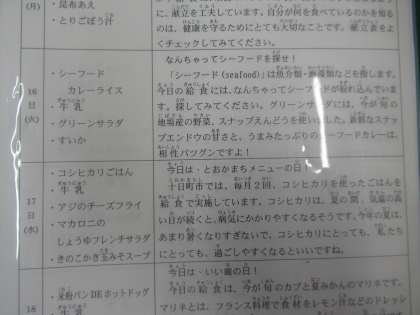 (月)
・昆布あえ
・とりごぼう汁
に、献立を工夫しています。自分が何を食べているのかを知る
のは、健康を守るためにとても大切なことです。献立表をよ
くチェックしてみてください。
16
日
(火)
・シーフード
カレーライス
・牛乳
・グリーンサラダ
・すいか
なんちゃってシーフードを探せ！
「シーフード(seafood)」は魚介類・海藻類などを指します。
今日の給食には、なんちゃってシーフードが紛れ込んでいま
す。探してみてください。グリーンサラダには、今が旬の
地場産の野菜、スナップえんどうを使いました。新鮮なスナ
ップエンドウの甘さと、うまみたっぷりのシーフードカレーは、
相性バツグンですよ！
17
日
(水)
・コシヒカリごはん
・牛乳
・アジのチーズフライ
・マカロニの
しょうゆフレンチサラダ
・きのこかき玉みそスープ
今日は・とおかまちメニューの日！
十日町市では、毎月２回、コシヒカリを使ったごはんを
給食で実施しています。コシヒカリは、夏の間、気温の高
い日が続くと、病気にかかりやすくなるそうです。今年の夏は、
あまり暑くなりすぎないで、コシヒカリにとっても、私たち
にとっても、過ごしやすくなるといいですね。
18
・米粉パンDEホットドッグ
・牛乳
今日は・いい歯の日！
今日の給食は、今が旬のカブと夏みかんのマリネです。
マリネとは、フランス料理で食材をレモン汁などのドレッシ